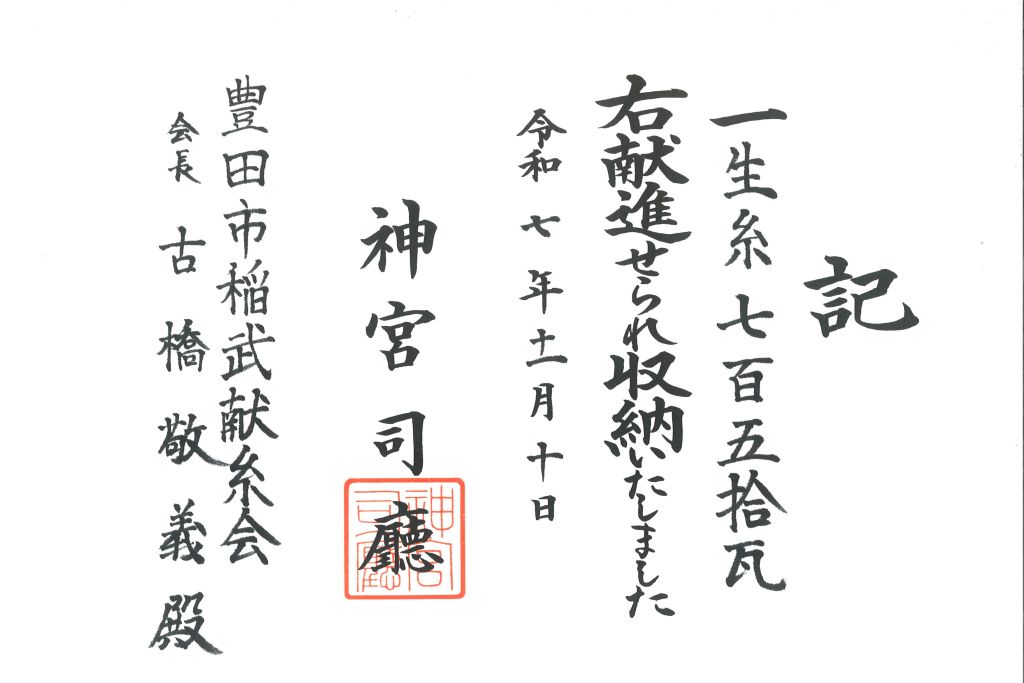 記
一生糸七百五拾瓦
右献進せられ収納いたしました
令和七年十一月十日
神宮司廳
神宮司廳
豊田市稲武献糸会
会長 古橋敬義殿